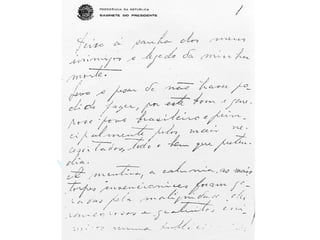 PRESIDÊNCIA DA REPÚBLICA
GABINETE DO PRESIDENTE
1
Deixo á sanha dos meus
inimigos o legado da minha
morte.
Levo o pesar de não haver po-
dido fazer, por este bom e gene-
roso povo brasileiro e prin-
cipalmente pelos mais ne-
cessitados, todo o bem que preten-
dia.
A mentira, a calunia, as mais
torpes invencionices foram ge-
radas pela malignidade de
rancorosos e gratuitos ini-
migos numa